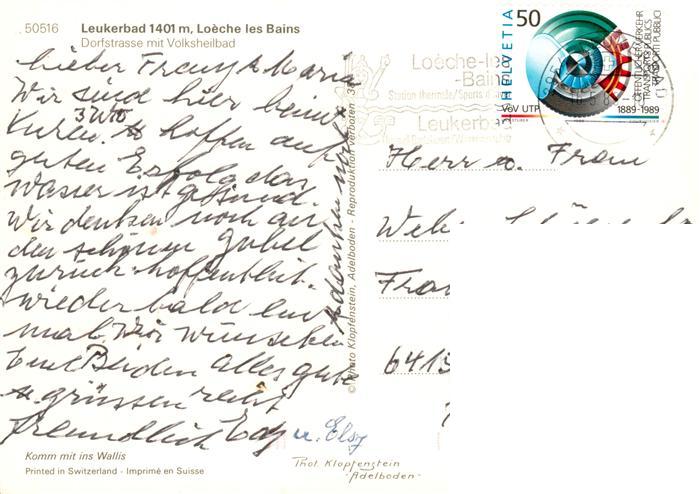 50516 Leukerbad 1401 m, Loèche les Bains
Dorfstrasse mit Volksheilbad
lieber Franz & Maria
Wir sind hier beim
3 Wo
Kuren. & hoffen auf
guten Erfolg das
Wasser ist gesund.
Wir denken noch an
den schönen Jubel
zurück. hoffentlich
wieder bald ein
mal. Wir wünschen
Euch Beiden alles gute
& grüssen recht
freundlich Edy u. Elsy
Komm mit ins Wallis
Printed in Switzerland - Imprimé en Suisse
© Renato Klopfenstein, Adelboden - Reproduktion verboten
Phot. Klopfenstein
-Adelboden-
HELVETIA 50
ÖFFENTLICHER VERKEHR
TRANSPORTS PUBLICS
TRASPORTI PUBBLICI
VöV UTP 1889-1989
Loèche-les
-Bains
Station thermale/Sports
Leukerbad
Herr u. Frau
6415